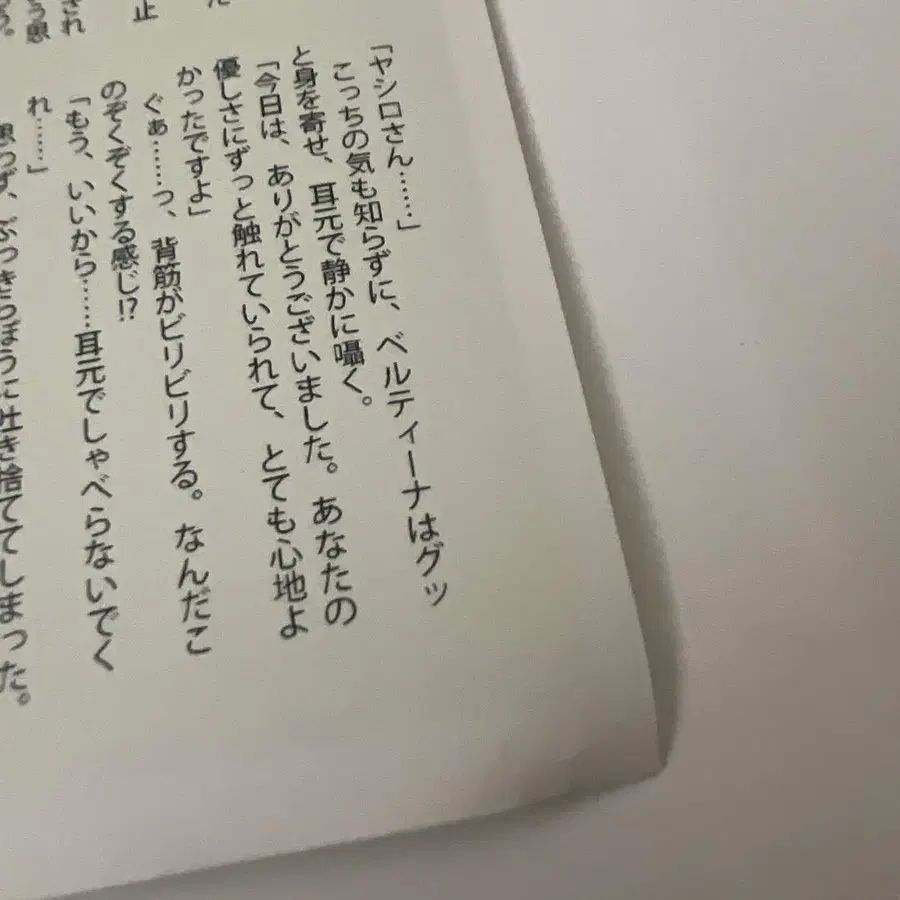 「ヤシロさん……」
こっちの気も知らずに、ベルティーナはグッ
と身を寄せ、耳元で静かに囁く。
「今日は、ありがとうございました。あなたの
優しさにずっと触れていられて、とても心地よ
かったですよ」
ぐぁ……っ、背筋がビリビリする。なんだこ
のぞくぞくする感じ!?
「もう、いいから……耳元でしゃべらないでく
れ……」
思わず、ぶっきらぼうに吐き捨ててしまった。